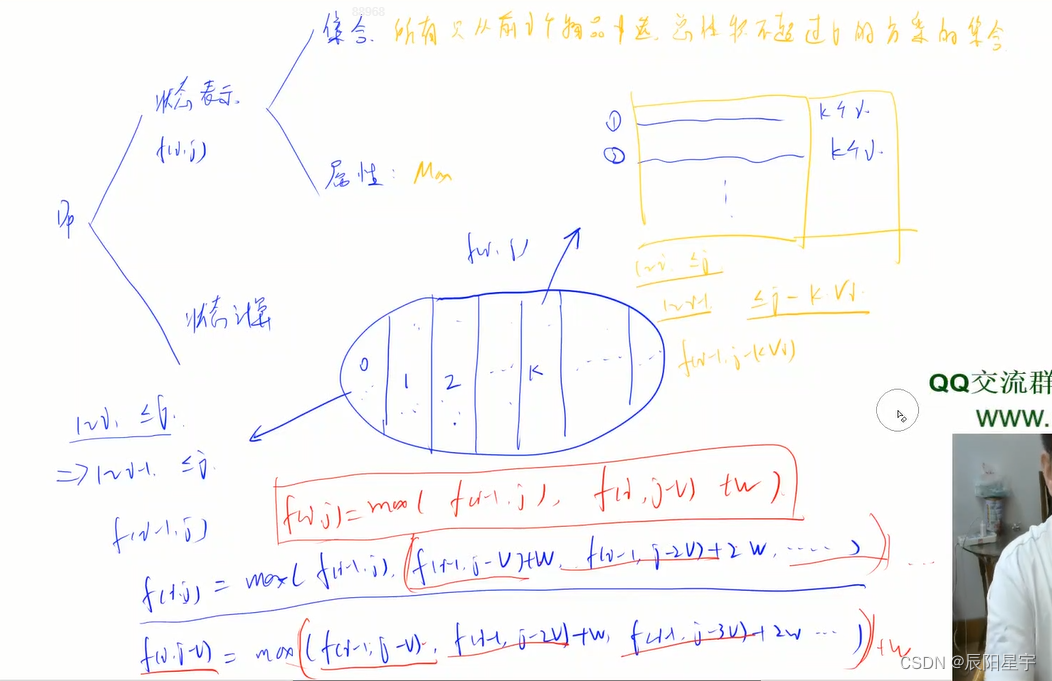 88968
集合. 所有只从前i个物品中选, 总体积不超过j的方案的集合
状态表示.
f(i,j)
① k个i.
② k个i.
属性: Max
DP
f(i,j)
1~i. ≤j
1~i-1. ≤j-k·Vi.
f(i-1, j-kVi)
状态计算
0 1 2 ..... K ......
1~i, ≤j.
=> 1~i-1. ≤j.
f(i-1,j)
QQ交流群
WWW.
f(i,j)=max( f(i-1,j), f(i,j-V)+W).
f(i,j) = max( f(i-1,j), f(i-1,j-V)+W, f(i-1,j-2V)+2W, ..... ) ...
f(i,j-V) = max( f(i-1,j-V), f(i-1,j-2V)+W, f(i-1,j-3V)+2W ... )+W
CSDN @辰阳星宇